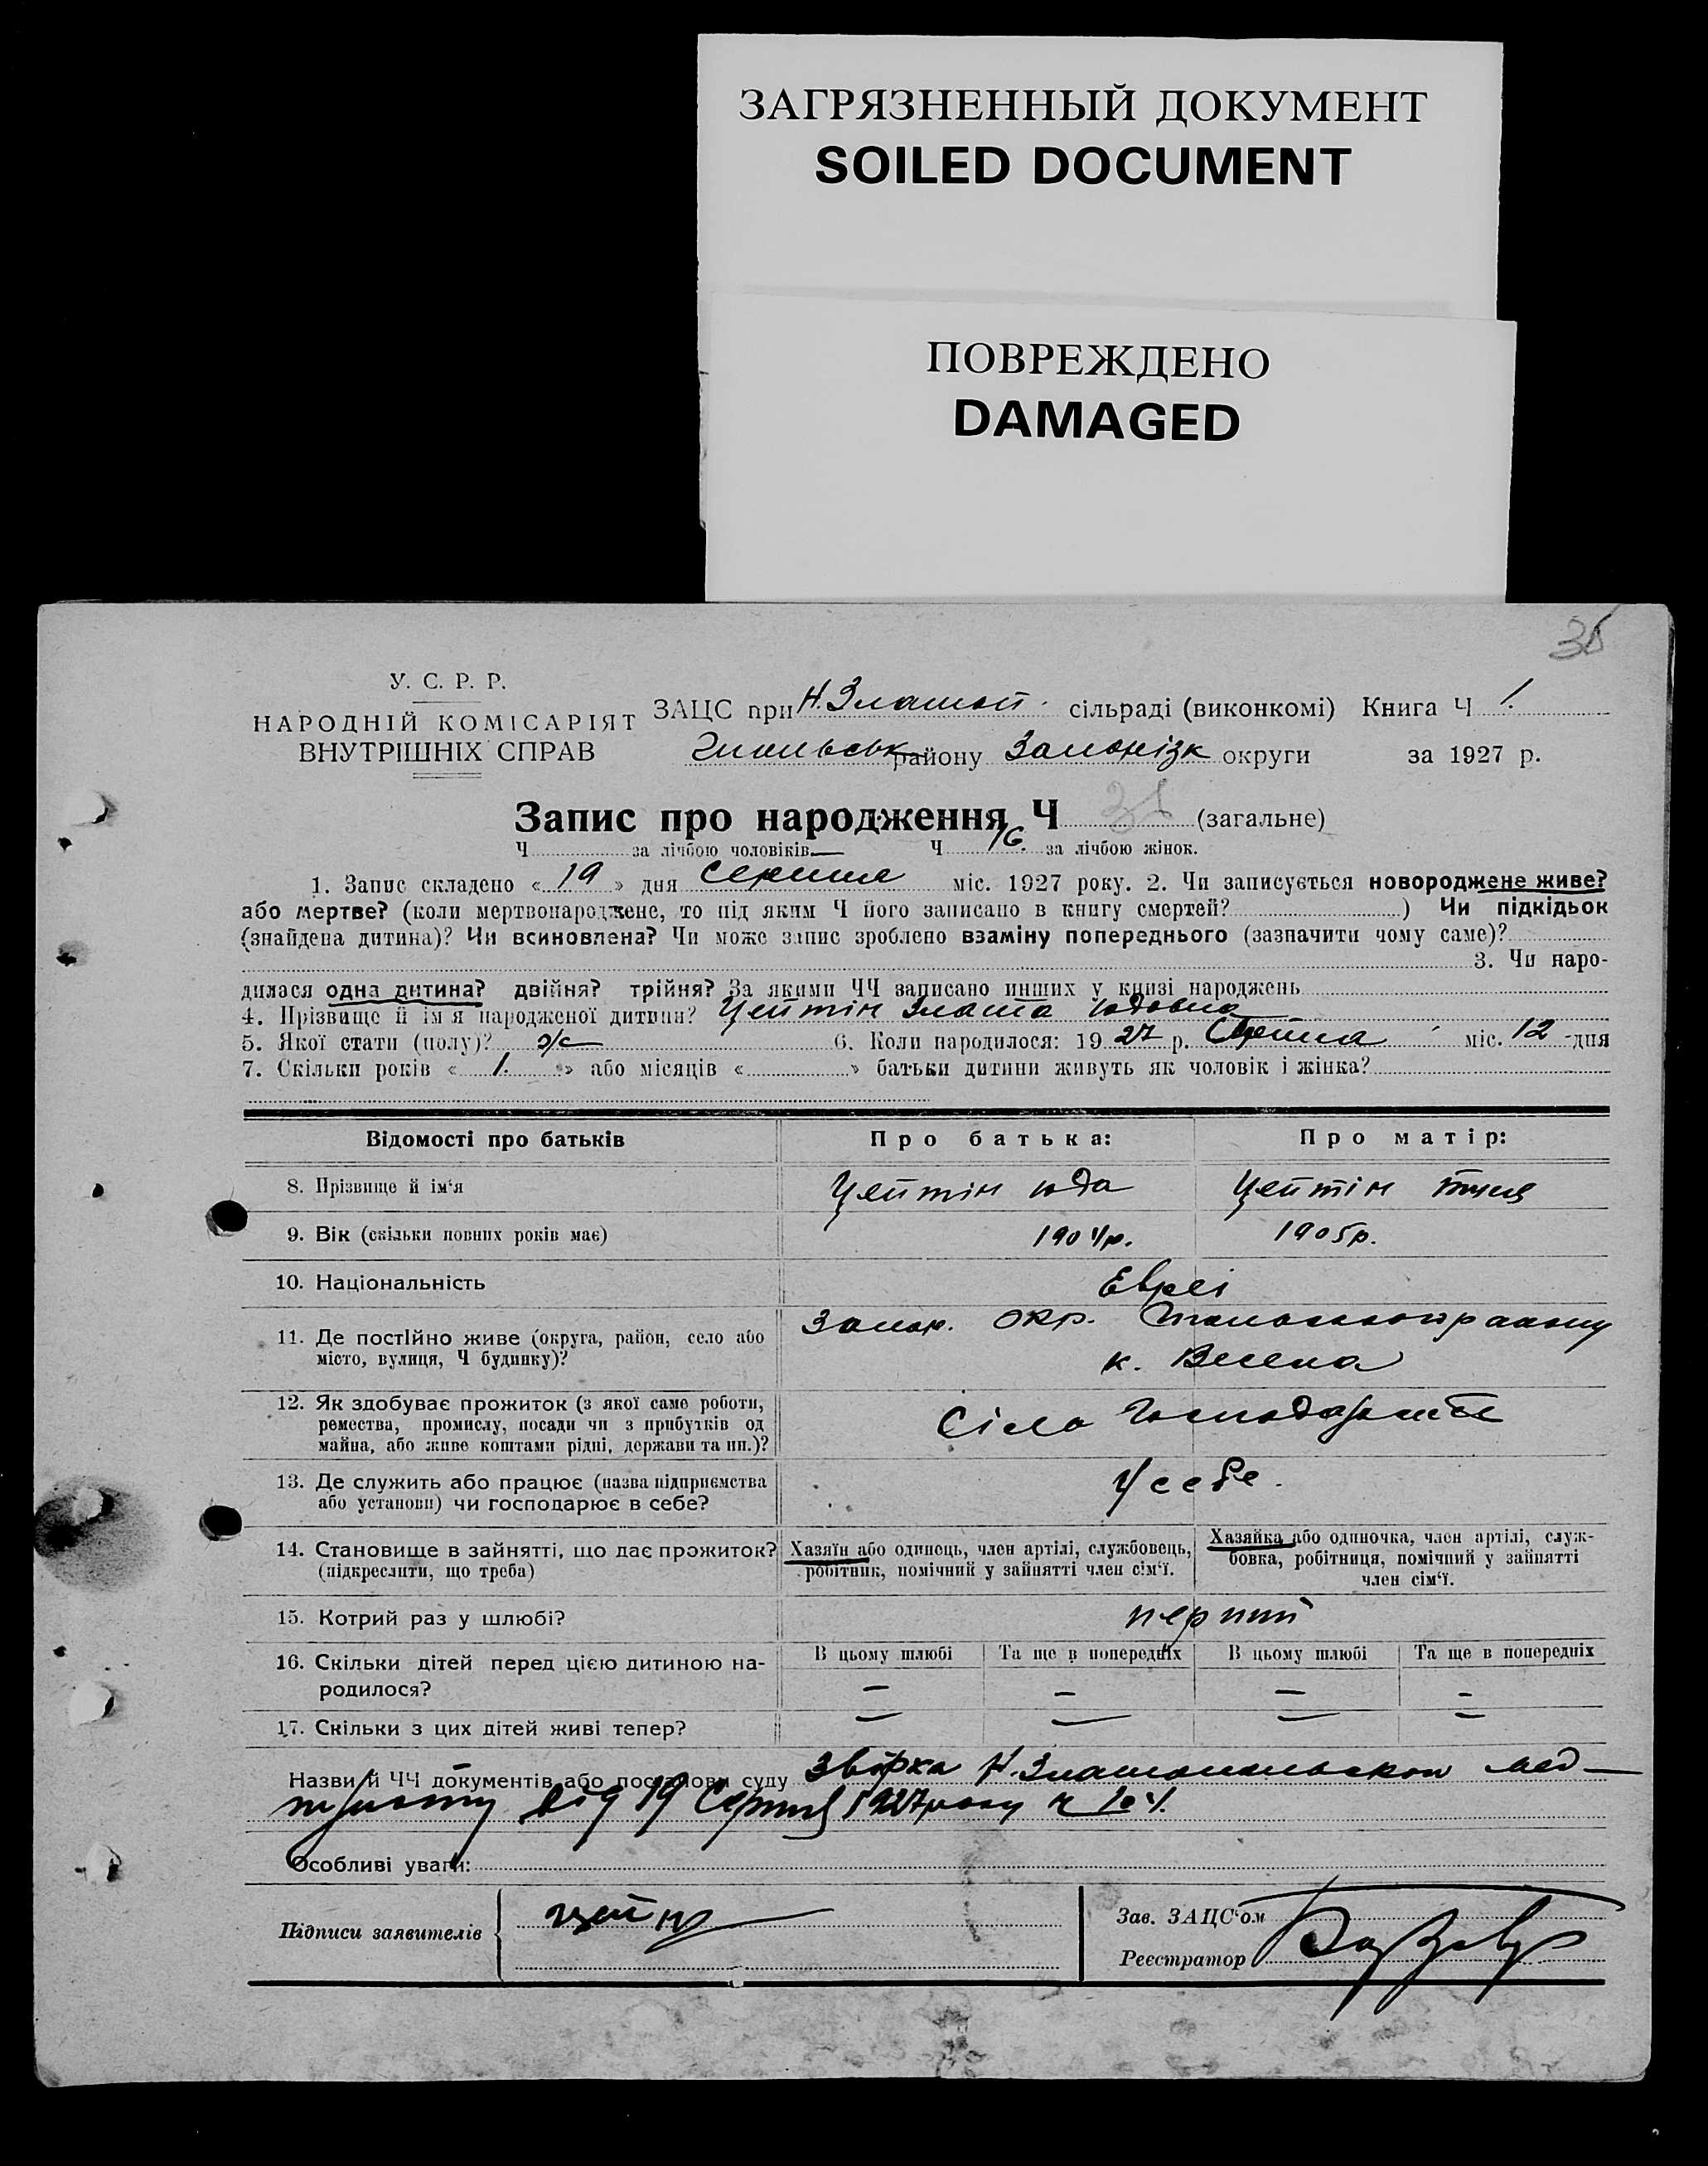 ЗАГРЯЗНЕННЫЙ ДОКУМЕНТ
SOILED DOCUMENT
ПОВРЕЖДЕНО
DAMAGED
У. С. Р. Р.
НАРОДНІЙ КОМІСАРІЯТ
ВНУТРІШНІХ СПРАВ
ЗАЦС при Н. Златоп. сільраді (виконкомі) Книга Ч 1.
району Запорізк округи за 1927 р.
Запис про народження Ч (загальне)
Ч за лічбою чоловіків Ч 16. за лічбою жінок.
1. Запис складено « 19 » дня Серпня міс. 1927 року. 2. Чи записується новороджене живе?
або мертве? (коли мертвонароджене, то під яким Ч його записано в книгу смертей? ) Чи підкідьок
(знайдена дитина)? Чи всиновлена? Чи може запис зроблено взаміну попереднього (зазначити чому саме)?
3. Чи наро-
дилася одна дитина? двійня? трійня? За якими ЧЧ записано инших у книзі народжень
4. Прізвище й ім'я народженої дитини? Цейтін Злата Юдовна
5. Якої стати (полу)? ж 6. Коли народилося: 19 27 р. Серпня міс. 12 -дня
7. Скільки років « 1. » або місяців « » батьки дитини живуть як чоловік і жінка?
Відомості про батьків Про батька: Про матір:
8. Прізвище й ім'я Цейтін Юда Цейтін
9. Вік (скільки повних років має) 1904р. 1905р.
10. Національність Евреі
11. Де постійно живе (округа, район, село або
місто, вулиця, Ч будинку)? Запор. окр. району
к. Весела
12. Як здобуває прожиток (з якої саме роботи,
ремества, промислу, посади чи з прибутків од
майна, або живе коштами рідні, держави та ин.)? Сіло господарство
13. Де служить або працює (назва підприємства
або установи) чи господарює в себе? У себе.
14. Становище в зайнятті, що дає прожиток?
(підкреслити, що треба)
Хазяїн або одинець, член артілі, службовець,
робітник, помічний у зайнятті член сім'ї.
Хазяйка або одиночка, член артілі, служ-
бовка, робітниця, помічний у зайнятті
член сім'ї.
15. Котрий раз у шлюбі? перший
16. Скільки дітей перед цією дитиною на-
родилося?
В цьому шлюбі Та ще в попередніх В цьому шлюбі Та ще в попередніх
— — — —
17. Скільки з цих дітей живі тепер? — — — —
Назви й ЧЧ документів або постанови суду Звірка Н. Златопольскои мед-
від 19 Серпня 1927 року ч 104.
Особливі уваги:
Підписи заявителів
Зав. ЗАЦС'ом
Реєстратор